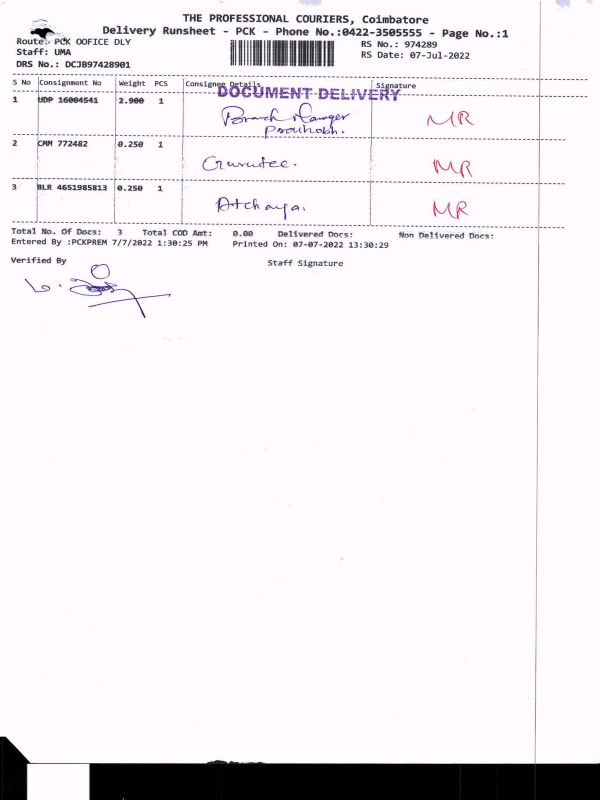 THE PROFESSIONAL COURIERS, Coimbatore
Delivery Runsheet - PCK - Phone No.:0422-3505555 - Page No.:1
Route: PCK OOFICE DLY
RS No.: 974289
Staff: UMA
RS Date: 07-Jul-2022
DRS No.: DCJB97428901
S No Consignment No Weight PCS Consignee Details Signature
DOCUMENT DELIVERY
1 UDP 16004541 2.900 1 Branch Manager MR
2 CMM 772482 0.250 1 MR
3 BLR 4651985813 0.250 1 Atchaya. MR
Total No. Of Docs: 3 Total COD Amt: 0.00 Delivered Docs: Non Delivered Docs:
Entered By :PCKPREM 7/7/2022 1:30:25 PM Printed On: 07-07-2022 13:30:29
Verified By
Staff Signature